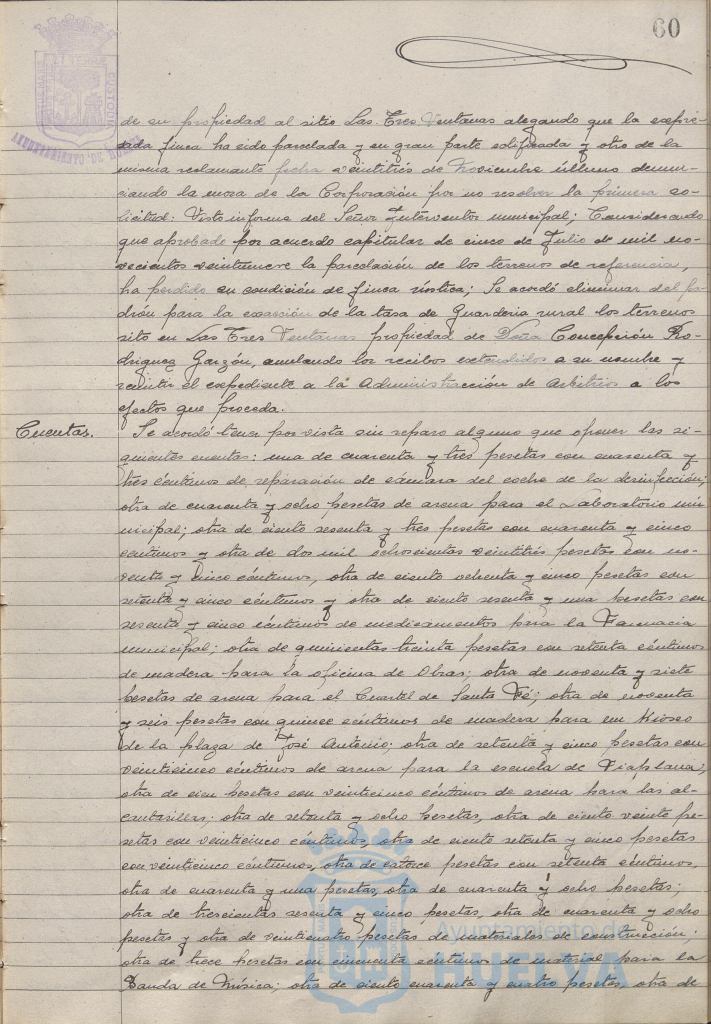 60
AYUNTAMIENTO DE HUELVA
de su propiedad al sitio Las Tres Ventanas alegando que la expre-
sada finca ha sido parcelada y en gran parte edificada y otro de la
misma reclamante fecha veintitrés de Noviembre último denun-
ciando la mora de la Corporación por no resolver la primera so-
licitud: Visto informe del Señor Interventor municipal; Considerando
que aprobado por acuerdo capitular de cinco de Julio de mil no-
vecientos veintinueve la parcelación de los terrenos de referencia,
ha perdido su condición de finca rústica; Se acordó eliminar del pa-
drón para la exacción de la tasa de Guardería rural los terrenos
sito en Las Tres Ventanas propiedad de Doña Concepción Ro-
driguez Garzón, anulando los recibos extendidos a su nombre y
remitir el expediente a la Administracción de Arbitrios a los
efectos que proceda.
Cuentas.
Se acordó tener por vista sin reparo alguno que oponer las si-
guientes cuentas: una de cuarenta y tres pesetas con cuarenta y
tres céntimos de reparación de cámara del coche de la desinfección;
otra de cuarenta y ocho pesetas de arena para el Laboratorio mu-
nicipal; otra de ciento sesenta y tres pesetas con cuarenta y cinco
céntimos y otra de dos mil ochocientas veintitrés pesetas con no-
venta y cinco céntimos, otra de ciento ochenta y cinco pesetas con
setenta y cinco céntimos y otra de ciento sesenta y una pesetas con
sesenta y cinco céntimos de medicamentos para la Farmacia
municipal; otra de quinientas treinta pesetas con setenta céntimos
de madera para la oficina de Obras; otra de noventa y siete
pesetas de arena para el Cuartel de Santa Fé; otra de noventa
y seis pesetas con quince céntimos de madera para un Kiosco
de la plaza de José Antonio; otra de setenta y cinco pesetas con
veinticinco céntimos de arena para la escuela de Viaplana;
otra de cien pesetas con veinticinco céntimos de arena para las al-
cantarillas; otra de setenta y ocho pesetas, otra de ciento veinte pe-
setas con veinticinco céntimos, otra de ciento setenta y cinco pesetas
con veinticinco céntimos, otra de catorce pesetas con setenta céntimos,
otra de cuarenta y una pesetas, otra de cuarenta y ocho pesetas;
otra de trescientas sesenta y cinco pesetas, otra de cuarenta y ocho
pesetas y otra de veinticuatro pesetas de materiales de construcción;
otra de trece pesetas con cincuenta céntimos de material para la
Banda de Música; otra de ciento cuarenta y cuatro pesetas, otra de
Ayuntamiento de
HUELVA